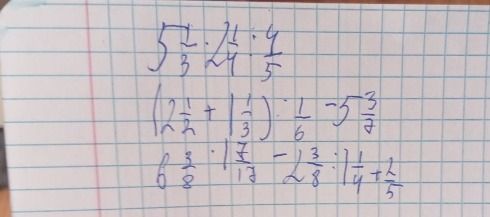 5 1/3 · 2 1/4 : 4/5
(2 1/2 + 1 1/3) : 1/6 - 5 3/7
6 3/8 · 1 7/17 - 2 3/8 : 1 1/4 + 2/5